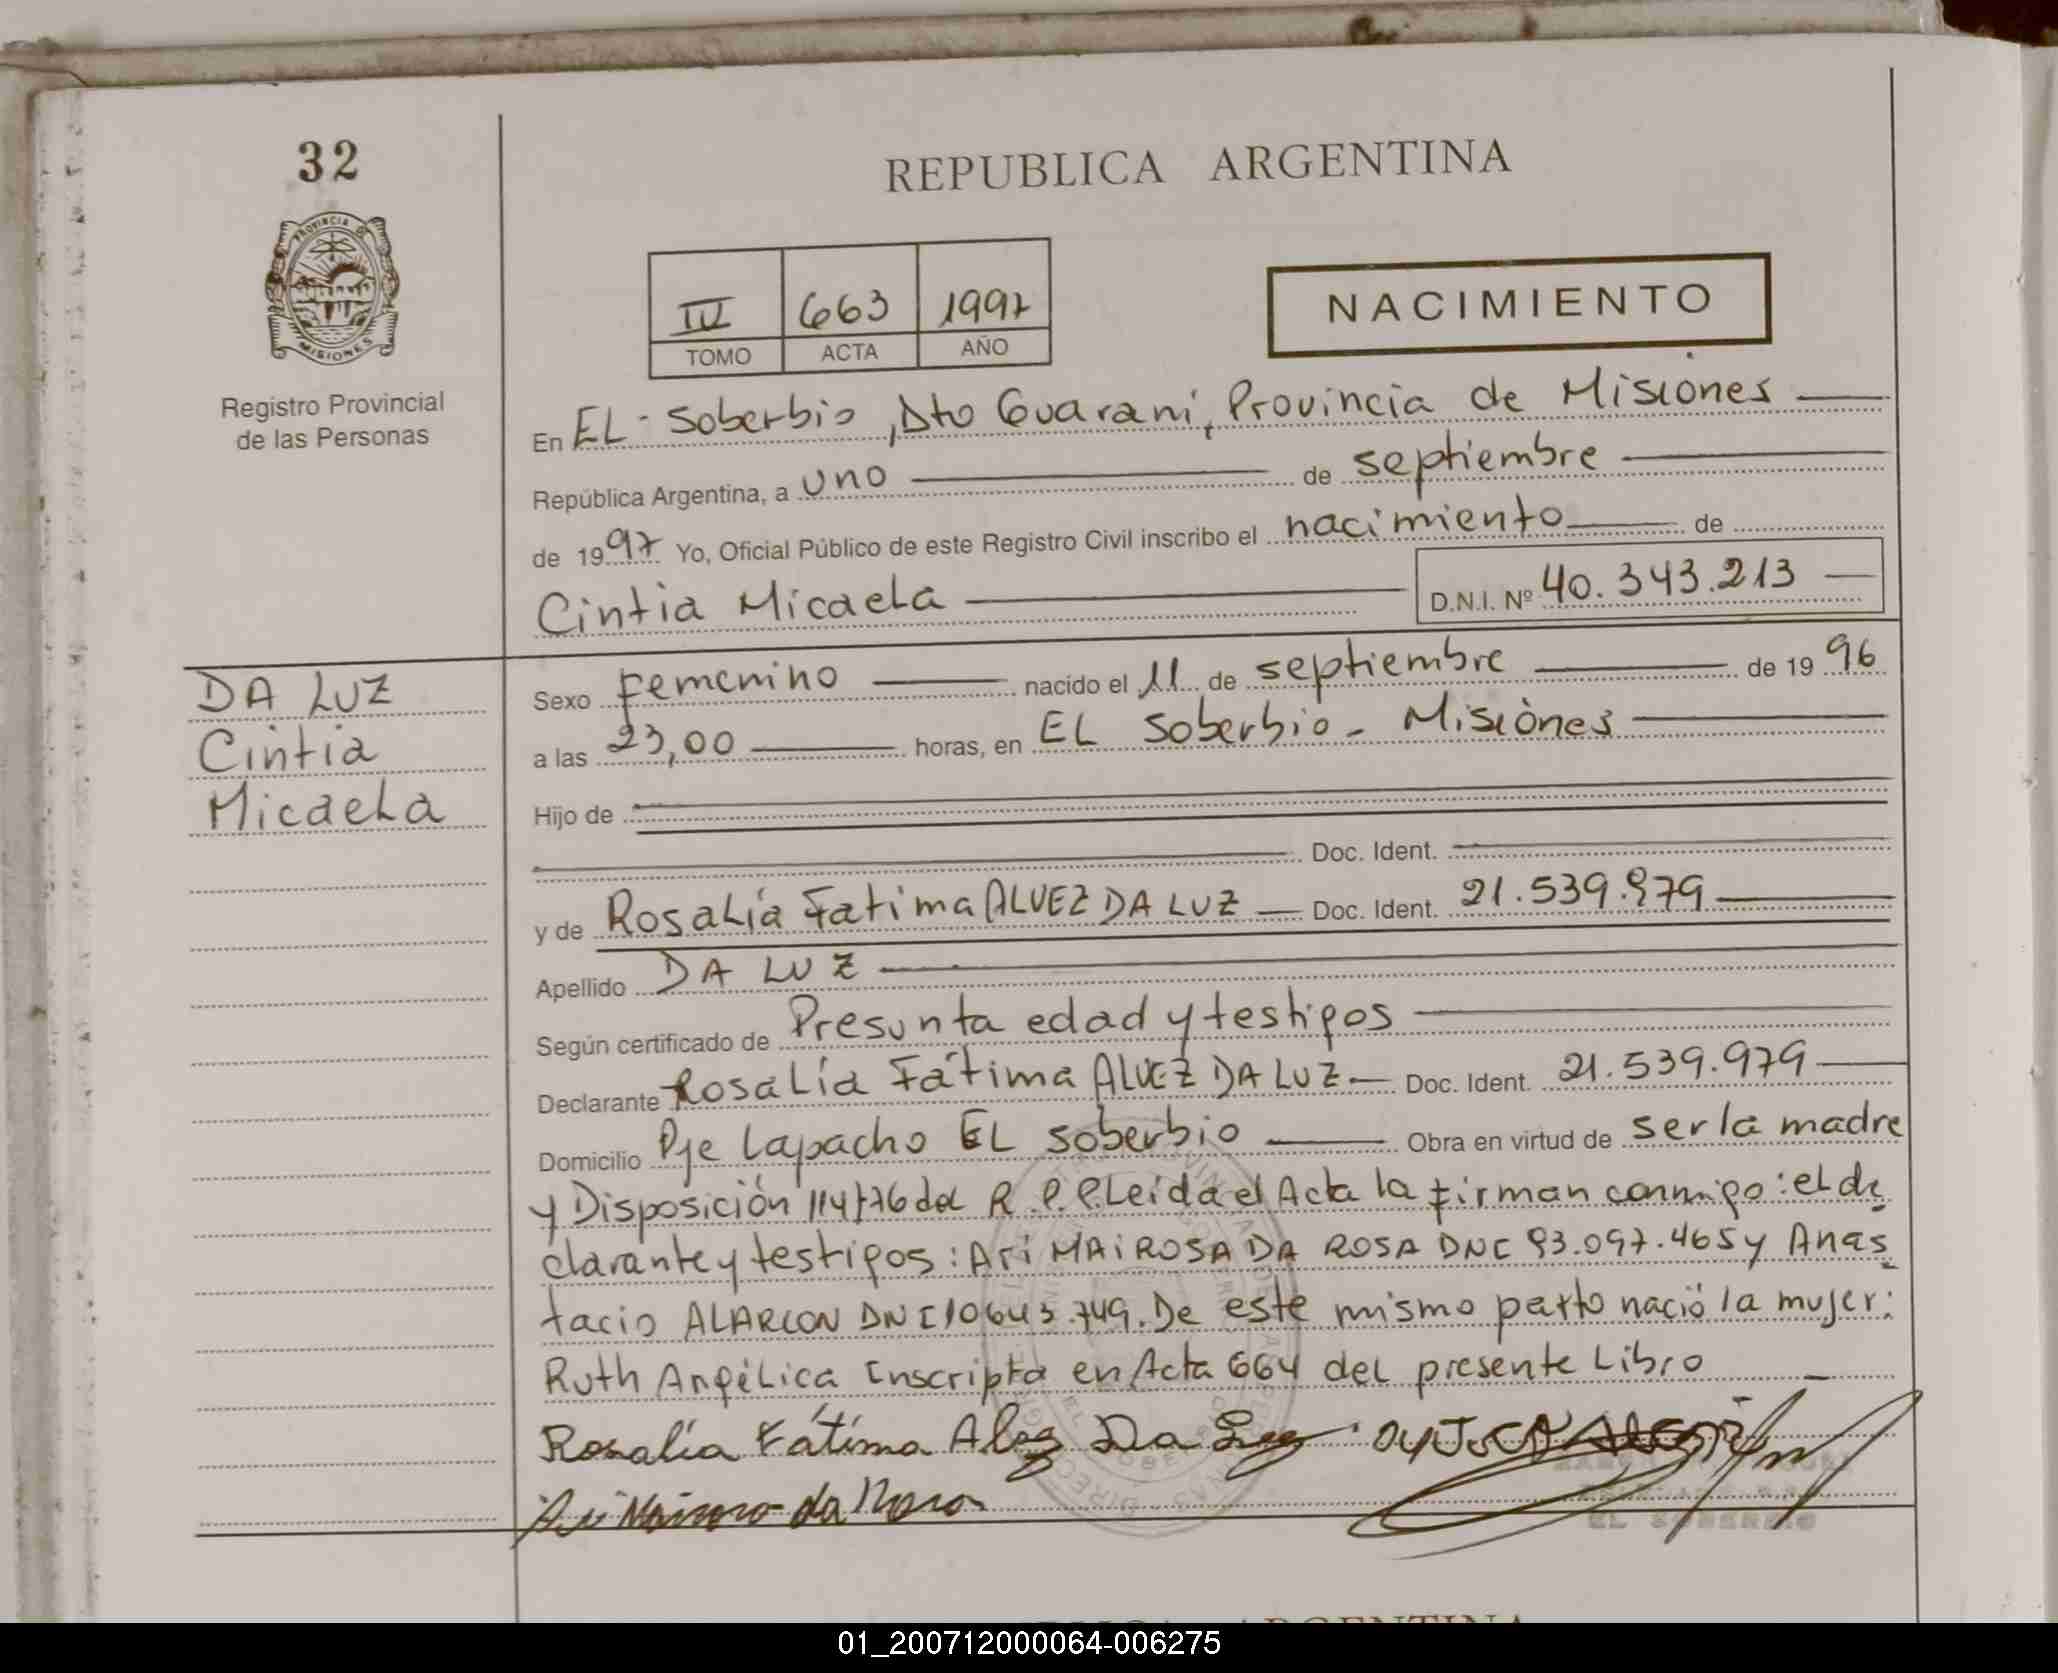 32
REPUBLICA ARGENTINA
PROVINCIA DE
MISIONES
Registro Provincial
de las Personas
IV 663 1997
TOMO ACTA AÑO
NACIMIENTO
En EL Soberbio, Dto Guaraní, Provincia de Misiones
República Argentina, a uno de septiembre
de 1997 Yo, Oficial Público de este Registro Civil inscribo el nacimiento de
Cintia Micaela D.N.I. Nº 40.343.213
DA LUZ
Cintia
Micaela
Sexo Femenino nacido el 11 de septiembre de 1996
a las 23,00 horas, en EL Soberbio - Misiones
Hijo de
Doc. Ident.
y de Rosalía Fatima ALVEZ DA LUZ Doc. Ident. 21.539.979
Apellido DA LUZ
Según certificado de Presunta edad y testigos
Declarante Rosalía Fátima ALVEZ DA LUZ Doc. Ident. 21.539.979
Domicilio Pje Lapacho EL Soberbio Obra en virtud de ser la madre
y Disposición 114/76 del R.P.P. Leída el Acta la firman conmigo: el de
clarante y testigos: Ari MAIROSA DA ROSA DNI 93.097.465 y Anas
tacio ALARCON DNI 10643.749. De este mismo parto nació la mujer:
Ruth Angélica Inscripta en Acta 664 del presente Libro
Rosalía Fátima Alvez Da Luz
EL SOBERBIO
REPUBLICA ARGENTINA
01_200712000064-006275